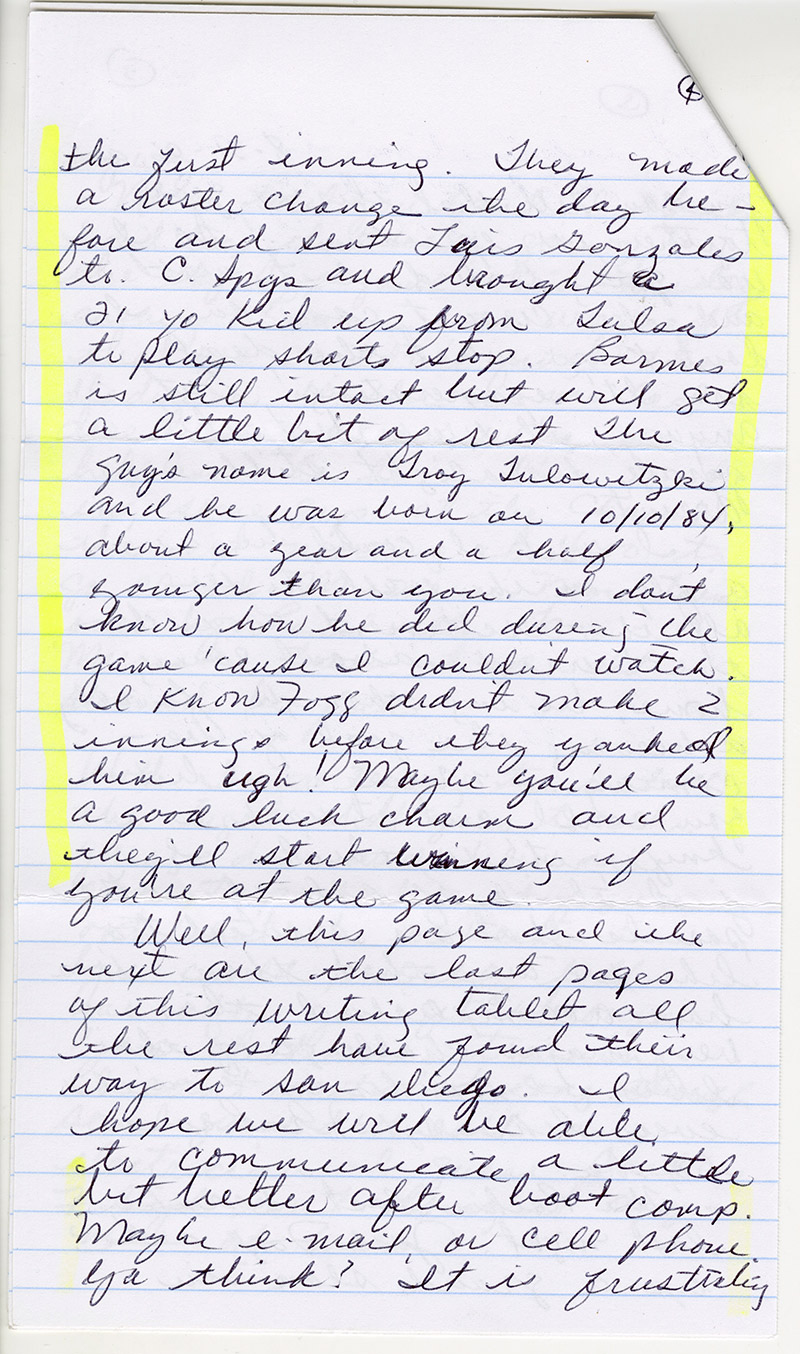 4
the first inning. They made
a roster change the day be-
fore and sent Luis Gonzales
to. C. Spgs and brought a
21 yo kid up from Tulsa
to play shorts stop. Barmes
is still intact but will get
a little bit of rest The
guy's name is Troy Tulowitzki
and he was born on 10/10/84,
about a year and a half
younger than you. I don't
know how he did during the
game 'cause I couldn't watch.
I know Fogg didn't make 2
innings before they yanked
him ugh! Maybe you'll be
a good luck charm and
they'll start winning if
you're at the game.
Well, this page and the
next are the last pages
of this writing tablet all
the rest have found their
way to San Diego. I
hope we will be able
to communicate a little
bit better after boot camp.
Maybe e-mail, or cell phone.
Ya think? It is frustrating